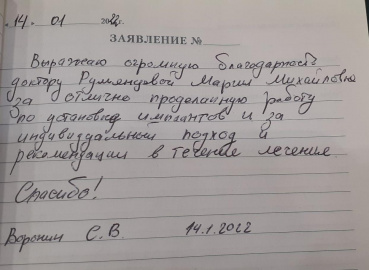 14. 01 2022г.
ЗАЯВЛЕНИЕ №
Выражаю огромную благодарность
доктору Румянцевой Марии Михайловне
за отлично проделанную работу
по установке имплантов и за
индивидуальный подход и
рекомендации в течение лечения.
Спасибо!
Воронин С.В. 14.1.2022